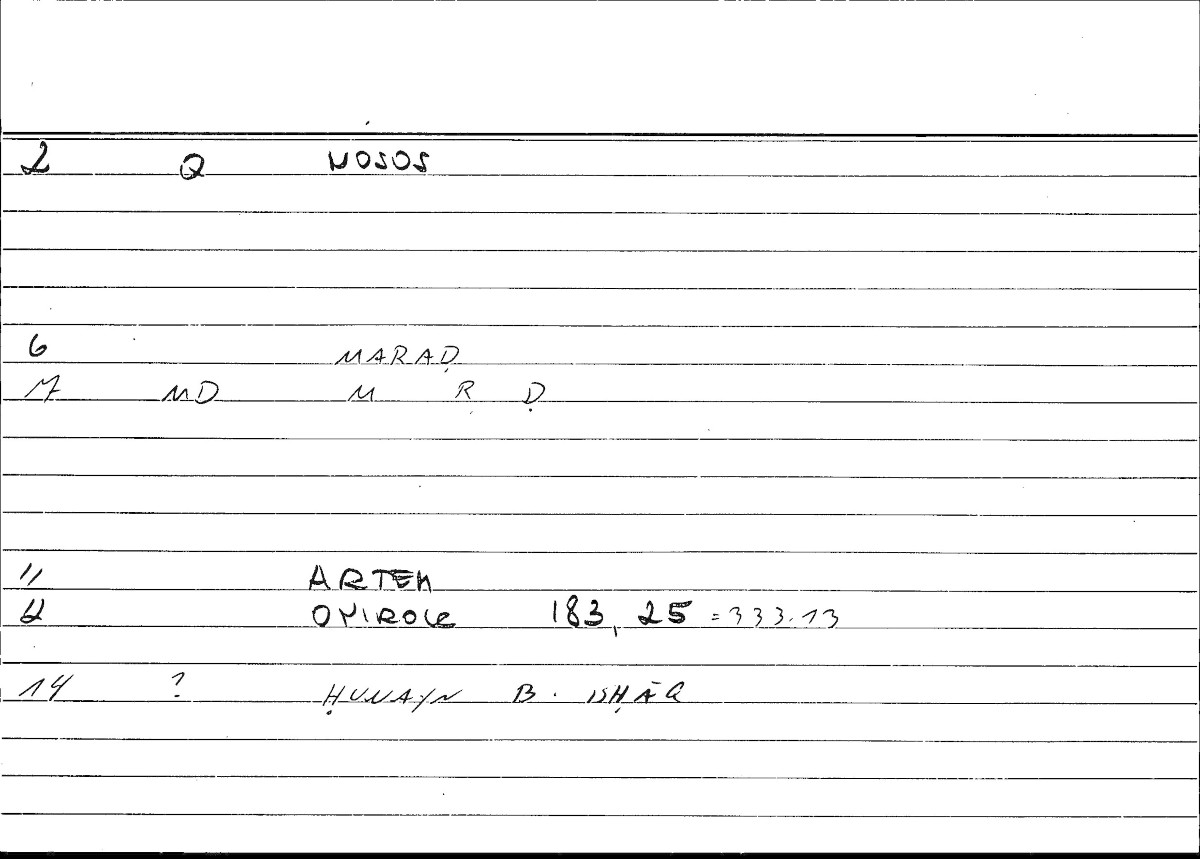 2 Q NOSOS
6 MARAḌ
7 MD M R Ḍ
11 ARTEM
12 ONIROCR 183, 25 = 333.13
14 ? ḤUNAYN B. ISḤĀQ